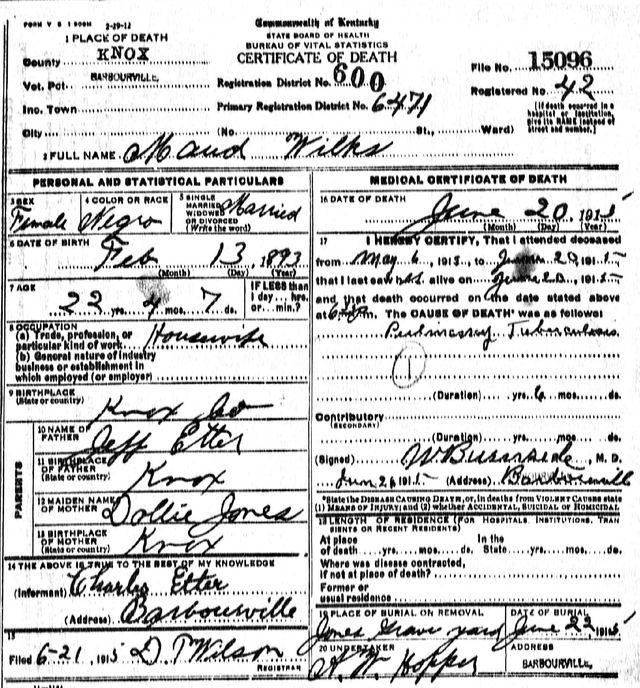 FORM V S 1 2-29-12
Commonwealth of Kentucky
STATE BOARD OF HEALTH
BUREAU OF VITAL STATISTICS
CERTIFICATE OF DEATH
1 PLACE OF DEATH
County KNOX
Vot. Pct. BARBOURVILLE,
Inc. Town
City
Registration District No. 600
Primary Registration District No. 6471
(No St., Ward)
File No. 15096
Registered No. 42
[If death occurred in a hospital or institution, give its NAME instead of street and number.]
2 FULL NAME Maud Wilks
PERSONAL AND STATISTICAL PARTICULARS
3 SEX Female
4 COLOR OR RACE Negro
5 SINGLE MARRIED WIDOWED OR DIVORCED (Write the word) Married
6 DATE OF BIRTH Feb 13, 1893
(Month) (Day) (Year)
7 AGE 22 yrs. 4 mos. 7 ds.
IF LESS than 1 day....hrs. or....min.?
8 OCCUPATION
(a) Trade, profession, or particular kind of work Housewife
(b) General nature of industry business or establishment in which employed (or employer)
9 BIRTHPLACE
(State or country) Knox Co
PARENTS
10 NAME OF FATHER Jeff Etter
11 BIRTHPLACE OF FATHER
(State or country) Knox
12 MAIDEN NAME OF MOTHER Dollie Jones
13 BIRTHPLACE OF MOTHER
(State or country) Knox
14 THE ABOVE IS TRUE TO THE BEST OF MY KNOWLEDGE
(Informant) Charlie Etter
(Address) Barbourville
15
Filed 6-21, 1915 D. T. Wilson
REGISTRAR
MEDICAL CERTIFICATE OF DEATH
16 DATE OF DEATH June 20, 1915
(Month) (Day) (Year)
17 I HEREBY CERTIFY, That I attended deceased
from May 6, 1915, to June 20, 1915
that I last saw h alive on June 20, 1915
and that death occurred on the date stated above
at m. The CAUSE OF DEATH* was as follows:
Pulmonary Tuberculosis
1
(Duration) yrs. 6 mos. ds.
Contributory
(SECONDARY)
(Duration) yrs. mos. ds.
(Signed) , M. D.
Jun 21 1915 (Address) Barbourville
*State the DISEASE CAUSING DEATH, or, in deaths from VIOLENT CAUSES state
(1) MEANS OF INJURY; and (2) whether ACCIDENTAL, SUICIDAL or HOMICIDAL
18 LENGTH OF RESIDENCE (FOR HOSPITALS, INSTITUTIONS, TRANSIENTS OR RECENT RESIDENTS)
At place of death....yrs.....mos.....ds.
In the State....yrs.....mos.....ds.
Where was disease contracted, if not at place of death?
Former or usual residence
19 PLACE OF BURIAL OR REMOVAL
Jones Grave yard
DATE OF BURIAL
June 22, 1915
20 UNDERTAKER
A. W. Hopper
ADDRESS
BARBOURVILLE,